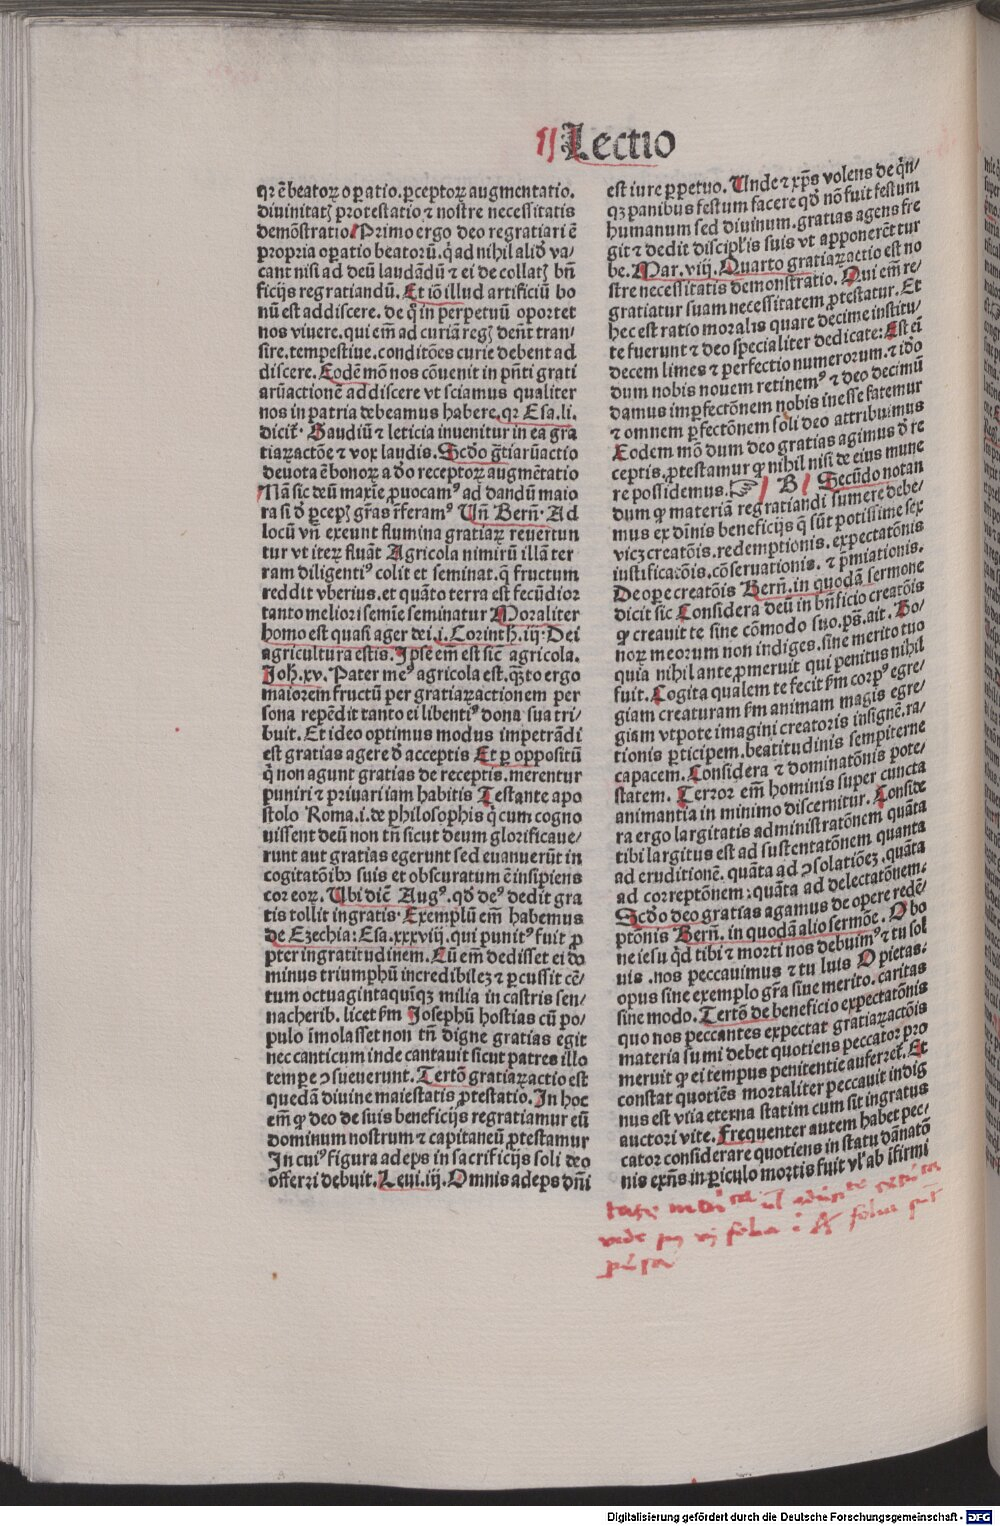 Lectio
qꝛ ē beatoꝝ oꝑatio. ꝑceptoꝝ augmentatio.
diuinitatꝭ ꝓtestatio ⁊ nostre necessitatis
demōstratio. Primo ergo deo regratiari ē
propria oꝑatio beatorū. q̇a ad nihil aliđ va⸗
cant nisi ad deū laudādū ⁊ ei de collatꝭ bn̄
ficijs regratiandū. Et iō illud artificiū bo
nū est addiscere. de q̊ in perpetuū oportet
nos viuere. qui em̄ ad curiā regꝭ den̄t tran⸗
sire. tempestiue. conditōes curie debent ad
discere. Eodē mō nos cōuenit in pn̄ti grati
arūactionē addiscere vt sciamus qualiter
nos in patria debeamus habere. qꝛ Esa. li.
dicit᷑. Gaudiū ⁊ leticia inuenitur in ea gra
tiaꝝactōe ⁊ vox laudis. Scđo gr̄tiarūactio
deuota ē bonoꝝ a đo receptoꝝ augmētatio
Nā sic deū maxīe ꝓuocamꝰ ad dandū maio
ra si đ ꝑcepꝭ gr̄as r̄feramꝰ Un̄ Bern̄. Ad
locū vn̄ exeunt flumina gratiaꝝ reuertun
tur vt iteꝝ fluāt Agricola nimirū illā ter
ram diligentiꝰ colit et seminat. q̄ fructum
reddit vberius. et quāto terra est fecūdior
tanto meliori semīe seminatur Moraliter
homo est quasi ager dei. i. Corinth. iij. Dei
agricultura estis. Ipse em̄ est sic̄ agricola.
Joh̄. xv. Pater meꝰ agricola est. q̄ꝫto ergo
maiorem fructū per gratiaꝝactionem per
sona repēdit tanto ei libentiꝰ dona sua tri⸗
buit. Et ideo optimus modus impetrādi
est gratias agere đ acceptis Et ꝑ oppositū
q̇ non agunt gratias de receptis. merentur
puniri ⁊ priuari iam habitis Testante apo
stolo Roma. i. de philosophis q̇ cum cogno
uissent deū non tn̄ sicut deum glorificaue⸗
runt aut gratias egerunt sed euanuerūt in
cogitatōibꝰ suis et obscuratum ē insipiens
cor eoꝝ. Ubi dic̄ Augꝰ. qđ deꝰ dedit gra
tis tollit ingratis. Exemplū em̄ habemus
de Ezechia: Esa. xxxviij. qui punitꝰ fuit ꝓ
pter ingratitudinem. Cū em̄ dedisset ei do
minus triumphū incredibileꝫ ⁊ ꝑcussit cē⸗
tum octuagintaquīqꝫ milia in castris sen⸗
nacherib. licet ẜm Josephū hostias cū po⸗
pulo īmolasset non tn̄ digne gratias egit
nec canticum inde cantauit sicut patres illo
tempe ꝯsueuerunt. Tertō gratiaꝝactio est
quedā diuine maiestatis ꝓtestatio. In hoc
em̄ ꝙ deo de suis beneficijs regratiamur eū
dominum nostrum ⁊ capitaneū ꝓtestamur
In cuiꝰ figura adeps in sacrificijs soli deo
offerri debuit. Leui. iij. Omnis adeps dn̄i
est iure ꝑpetuo. Unde ⁊ xp̄s volens de q̇n⸗
qꝫ panibus festum facere qđ nō fuit festum
humanum sed diuinum. gratias agens fre
git ⁊ dedit discipl̕is suis vt apponerēt tur
be. Mar. viij. Quarto gratiaꝝactio est no
stre necessitatis demonstratio. Qui em̄ re⸗
gratiatur suam necessitatem ꝓtestatur. Et
hec est ratio moralis quare decime institu⸗
te fuerunt ⁊ deo specialiter dedicate: Est ei
decem limes ⁊ perfectio numerorum. ⁊ iđo
dum nobis nouem retinemꝰ ⁊ deo decimū
damus imꝑfectōnem nobis inesse fatemur
⁊ omnem ꝑfectōnem soli deo attribuimus
Eodem mō dum deo gratias agimus đ re
ceptis. ꝓtestamur ꝙ nihil nisi de eius mune
re possidemus. ☞ B Secūdo notan
dum ꝙ materiā regratiandi sumere debe⸗
mus ex diuīnis beneficijs q̄ sūt potissime sex
vicꝫ creatōis. redemptionis. expectatōnis
iustificacōis. cōseruationis. ⁊ p̄miationis.
De ope creatōis Bern̄. in quodā sermone
dicit sic Considera deū in bn̄ficio creatōis
ꝙ creauit te sine cōmodo suo. ps̄. ait. Bo⸗
noꝝ meorum non indiges. sine merito tuo
quia nihil ante ꝓmeruit qui penitus nihil
fuit. Cogita qualem te fecit ẜm corpꝰ egre⸗
giam creaturam ẜm animam magis egre⸗
giam vtpote imagini creatoris insignē. ra⸗
tionis ꝑticipem. beatitudinis sempiterne
capacem. Considera ⁊ dominatōnis pote⸗
statem. Terror em̄ hominis super cuncta
animantia in minimo discernitur. Conside
ra ergo largitatis administratōnem quāta
tibi largitus est ad sustentatōnem quanta
ad eruditionē. quāta ad ꝯsolatiōeꝫ. quāta
ad correptōnem: quāta ad delectatōnem.
Scđo deo gratias agamus de opere redē⸗
ptōnis Bern̄. in quodā alio sermōe. O bo
ne iesu qđ tibi ⁊ morti nos debuimꝰ ⁊ tu sol
uis. nos peccauimus ⁊ tu luis O pietas.
opus sine exemplo gr̄a siue merito. caritas
sine modo. Tertō de beneficio expectatōnis
quo nos peccantes expectat gratiaꝝactōis
materia sumi debet quotiens peccatoꝛ pro
meruit ꝙ ei tempus penitentie auferret᷑. Et
constat quotiēs mortaliter peccauit indig
nus est vita eterna statim cum sit ingratus
auctori vite. Frequenter autem habet pec⸗
cator considerare quotiens in statu dānatō
nis exn̄s in ꝑiculo moztis fuit vl̕ ab īfirmi